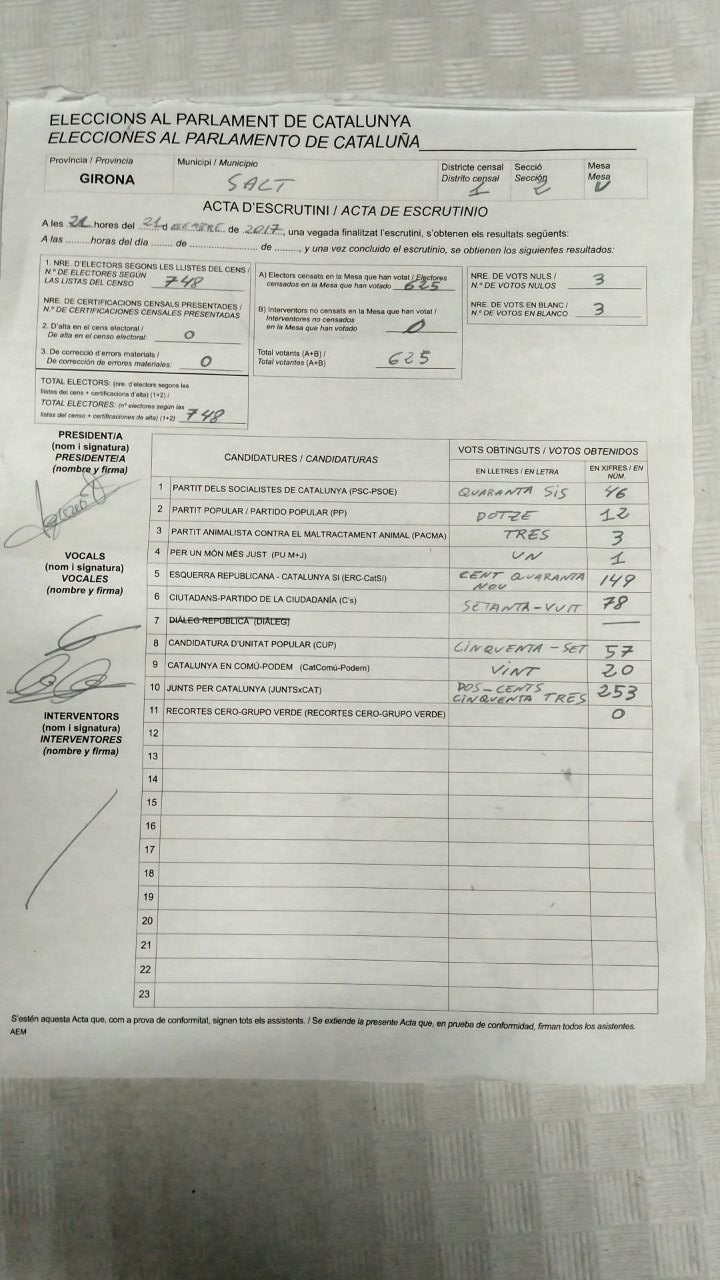 ELECCIONS AL PARLAMENT DE CATALUNYA
ELECCIONES AL PARLAMENTO DE CATALUÑA
Província / Provincia
GIRONA
Municipi / Municipio
SALT
Districte censal
Distrito censal
1
Secció
Sección
2
Mesa
Mesa
U
ACTA D'ESCRUTINI / ACTA DE ESCRUTINIO
A les 21 hores del 21 d de 2017, una vegada finalitzat l'escrutini, s'obtenen els resultats següents:
A las ......... horas del día ........ de ........................ de ........., y una vez concluido el escrutinio, se obtienen los siguientes resultados:
1. NRE. D'ELECTORS SEGONS LES LLISTES DEL CENS /
N.º DE ELECTORES SEGÚN
LAS LISTAS DEL CENSO 748
NRE. DE CERTIFICACIONS CENSALS PRESENTADES /
N.º DE CERTIFICACIONES CENSALES PRESENTADAS
2. D'alta en el cens electoral /
De alta en el censo electoral: 0
3. De correcció d'errors materials /
De corrección de errores materiales: 0
TOTAL ELECTORS: (nre. d'electors segons les
llistes del cens + certificacions d'alta) (1+2) /
TOTAL ELECTORES: (nº electores según las
listas del censo + certificaciones de alta) (1+2) 748
A) Electors censats en la Mesa que han votat / Electores
censados en la Mesa que han votado 625
B) Interventors no censats en la Mesa que han votat /
Interventores no censados
en la Mesa que han votado 0
Total votants (A+B) /
Total votantes (A+B) 625
NRE. DE VOTS NULS /
N.º DE VOTOS NULOS 3
NRE. DE VOTS EN BLANC /
N.º DE VOTOS EN BLANCO 3
PRESIDENT/A
(nom i signatura)
PRESIDENTE/A
(nombre y firma)
VOCALS
(nom i signatura)
VOCALES
(nombre y firma)
INTERVENTORS
(nom i signatura)
INTERVENTORES
(nombre y firma)
CANDIDATURES / CANDIDATURAS
VOTS OBTINGUTS / VOTOS OBTENIDOS
EN LLETRES / EN LETRA
EN XIFRES / EN NÚM.
1 PARTIT DELS SOCIALISTES DE CATALUNYA (PSC-PSOE) QUARANTA SIS 46
2 PARTIT POPULAR / PARTIDO POPULAR (PP) DOTZE 12
3 PARTIT ANIMALISTA CONTRA EL MALTRACTAMENT ANIMAL (PACMA) TRES 3
4 PER UN MÓN MÉS JUST (PU M+J) UN 1
5 ESQUERRA REPUBLICANA - CATALUNYA SI (ERC-CatSí) CENT QUARANTA NOU 149
6 CIUTADANS-PARTIDO DE LA CIUDADANÍA (C's) SETANTA-VUIT 78
7 DIÀLEG REPÚBLICA (DIÀLEG) —
8 CANDIDATURA D'UNITAT POPULAR (CUP) CINQUENTA-SET 57
9 CATALUNYA EN COMÚ-PODEM (CatComú-Podem) VINT 20
10 JUNTS PER CATALUNYA (JUNTSxCAT) DOS-CENTS CINQUENTA TRES 253
11 RECORTES CERO-GRUPO VERDE (RECORTES CERO-GRUPO VERDE) 0
12
13
14
15
16
17
18
19
20
21
22
23
S'estén aquesta Acta que, com a prova de conformitat, signen tots els assistents. / Se extiende la presente Acta que, en prueba de conformidad, firman todos los asistentes.
AEM